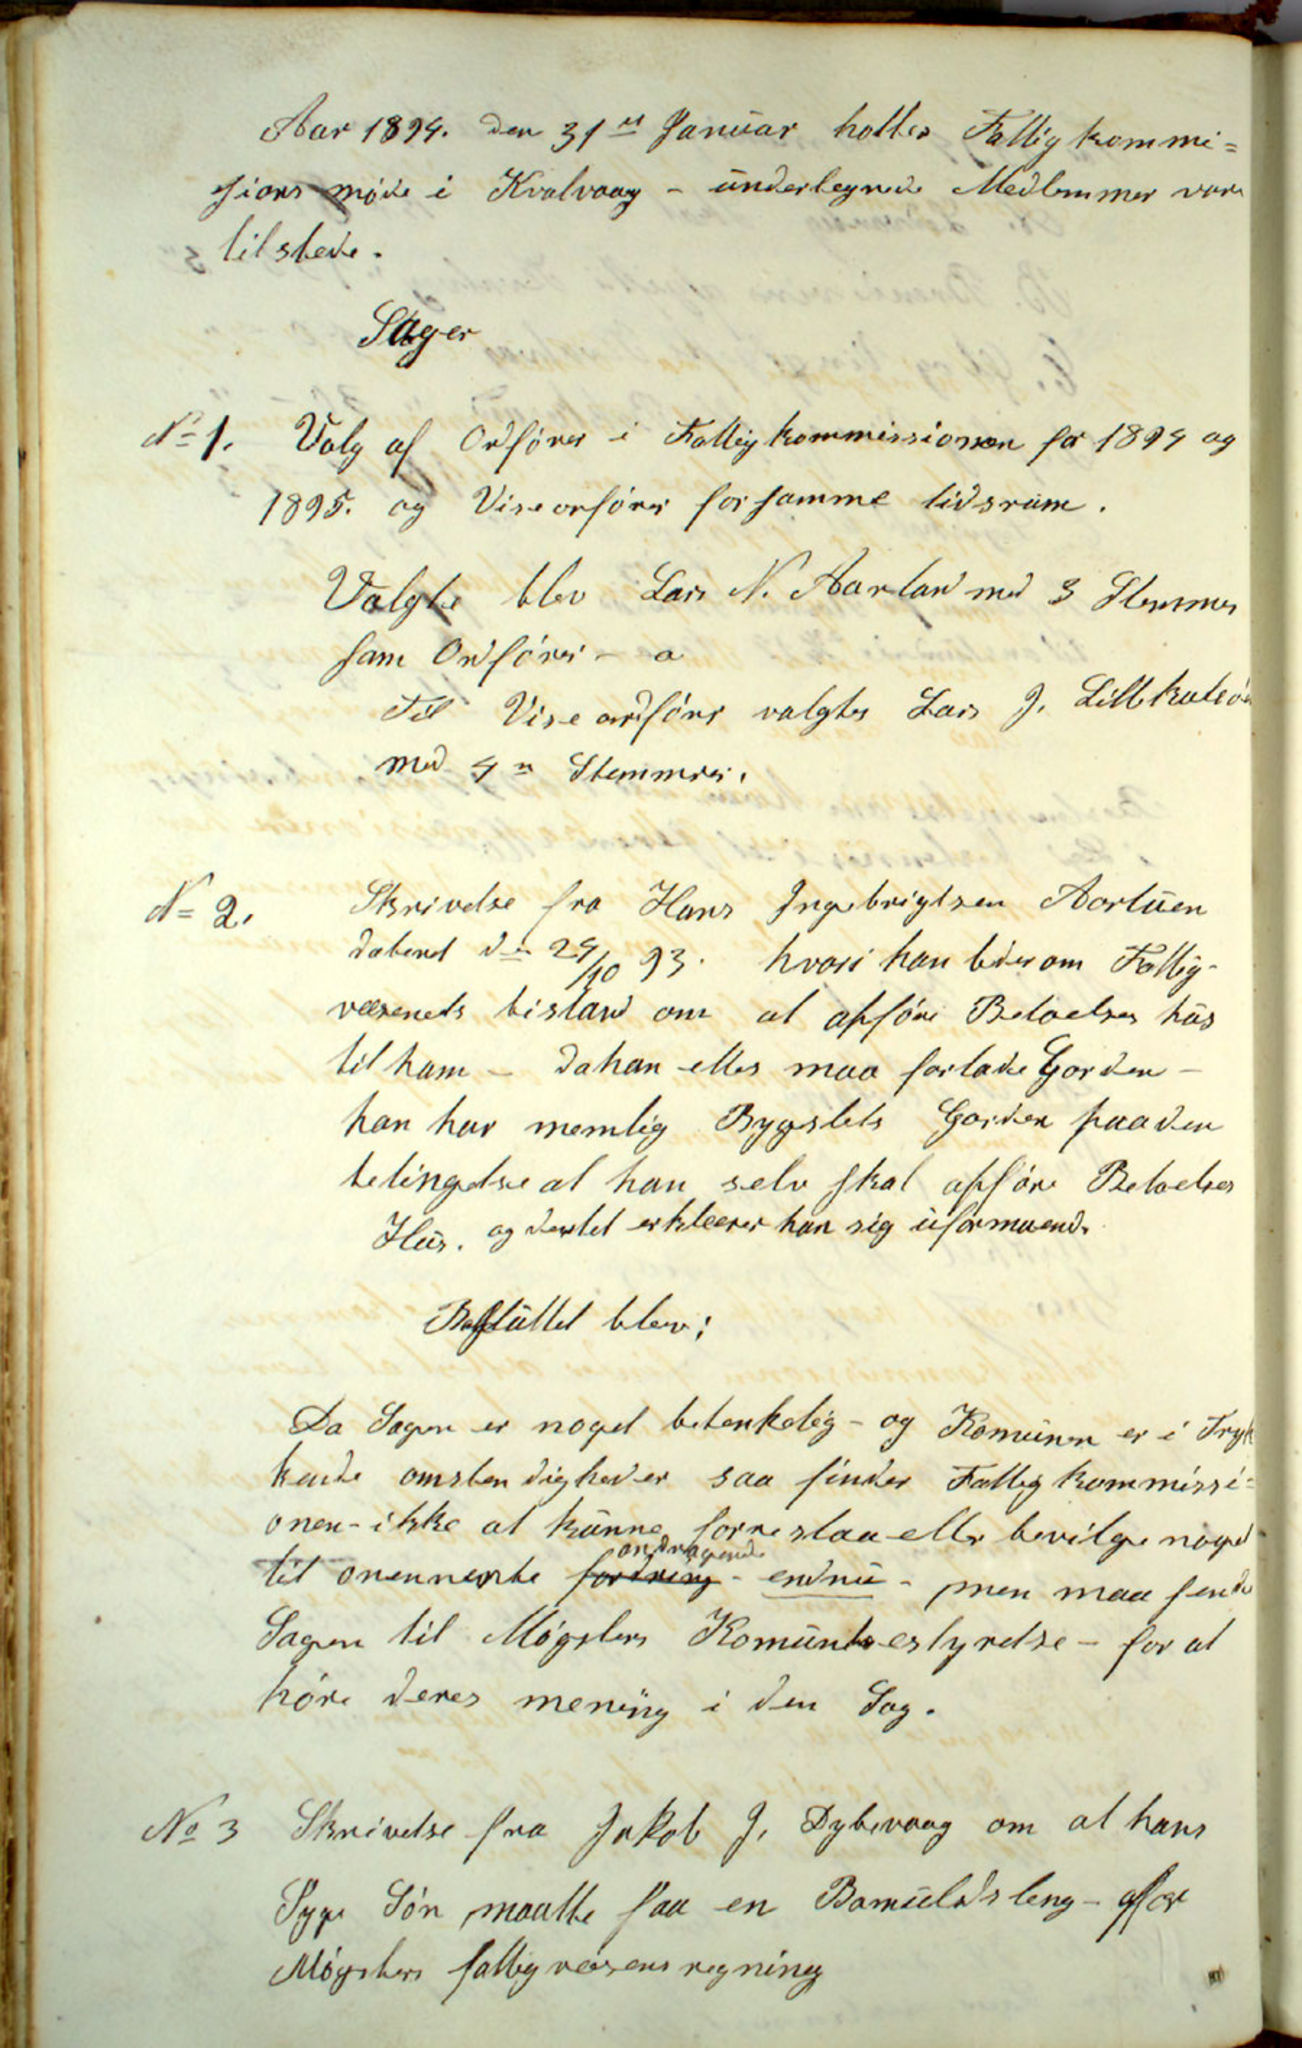 Aar 1894. den 31te Januar holtes Fattigkommi=
sions møde i Kvalvaag – underlegnede Medlemmer vare
tilstede.
Sager
No 1. Valg af Ordfører i Fattigkommissionen for 1894 og
1895. og Viseorfører for samme tidsrum.
Valgte blev Lars N. Aarland med 3 Stemmer
som Ordfører –
Til Viseordførr valgtes Lars J. Littlekaleø
med 4 Stemmer.
No 2. Skrivelse fra Hans Ingebrigtsen Aarluen
dateret den 24/10 93. hvori han beder om Fattig-
væsenets bistand om at opføre Beboelses hus
til ham – da han elles maa forlade Gorden –
han har nemlig Bygslets Gorden paa den
betingelse at han selv skal opføre Beboelses
Hus. og dertil erklærer han sig uformaaende
Besluttet blev;
Da Sagen er noget betenkelig – og Komunen er i Tryk
kende omstendigheder saa finder Fattigkommissi=
onen – ikke at kunne forreslaa eller bevilge noget
andragende
til onennente fordring – endnu – men maa sende
Sagen til Møgsters Komunbestyrelse – for at
høre deres mening i den Sag.
No 3 Skrivelse fra Jakob J. Dybevaag om at hans
Syge Søn maatte faa en Bomuldsleng – for
Møgsters fattigvæsens regning